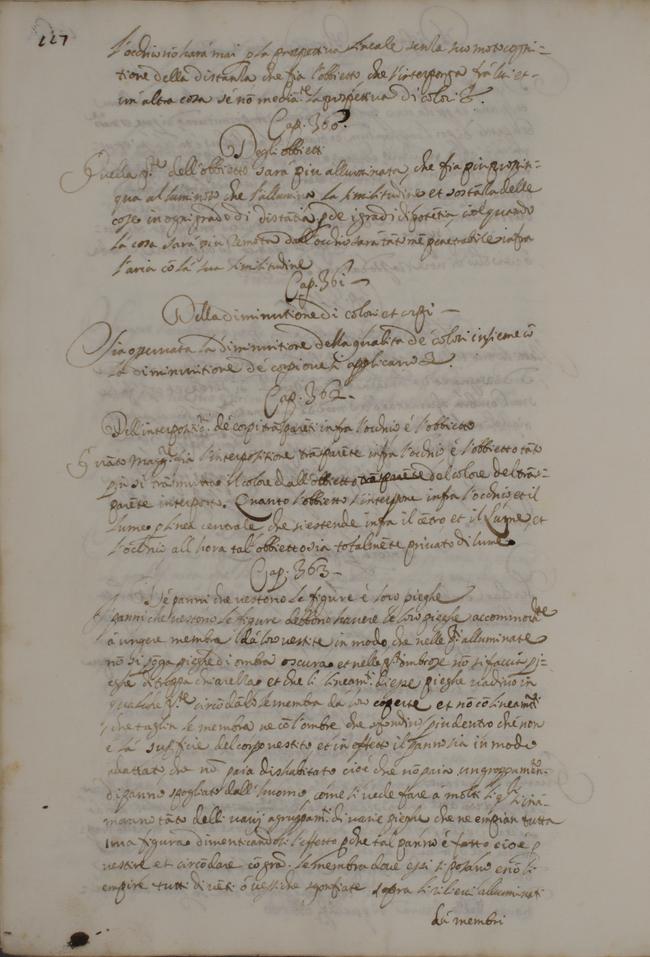 117
l'occhio nō harà mai p la prospettiva lineale senza suo moto cogni-
tione della distanza che fia l'obbietto che s'interponga frà lui et
un'altra cosa se nō mediāte la prospettiva di colori &.
Cap. 360.
Degli obbietti
Quella pte dell'obbietto sarà piu alluminata che fia piu propin-
qua al luminoso che l'allumina la similitudine et sostanza delle
cose in ogni grado di distātia pde i gradi di potētia, cioè quando
la cosa sarà piu remota dall'occhio sarà tāto mē penetrabile infra
l'aria cō la sua similitudine
Cap. 361 —
Della diminutione di colori et corpi —
Sia osservata la diminutione della qualita de colori insieme cō
la diminutione de corpi ove si applicano &.
Cap. 362 -
Dell'interpositie de corpi trāsparēti infra l'occhio è l'obbietto
Quāto maggr fia l'interpositione trāsparēte infra l'occhio è l'obbietto tāto
più si trāsmuta il colore dall'obbietto trāsparēte del colore del trās-
parēte interposto. Quanto l'obbietto s'interpone infra l'occhio et il
lume p linea centrale che si estende infra il cētro et il Lume et
l'occhio all hora tal'obbietto sia totalmēte privato di lume
Cap. 363 —
De panni che vestono le figure è loro pieghe
I panni che vestono le figure debbono havere le loro pieghe accommodate
à cingere membra da loro vestite in modo che nelle pti alluminate
nō si pōga pieghe di ombra oscura et nelle pti ombrose nō si faccia pi-
eghe di troppa chiarezza et che li lineamti di esse pieghe vadino in
qualche pte circōdādo le membra da loro coperte et nō cō lineamti
che taglia le membra ne cō l'ombre che sfondino piu dentro che non
è la supficie del corpo vestito et in effetto il panno sia in modo
adattato che nō paia dishabitato cioè che nō paia un groppamēto
di panno spogliato dall'huomo come si vede fare à molti li qli s'inā-
morano tāto delli varij agruppamti di varie pieghe che ne empian tutta
una figura dimenticandosi l'effetto pche tal panno è fatto cioè p
vestire et circōdare cō gra. le membra dove essi si posano e nō li
empire tutti di vēti ò vessiche sgonfiate sopra li rilievi alluminati
de membri